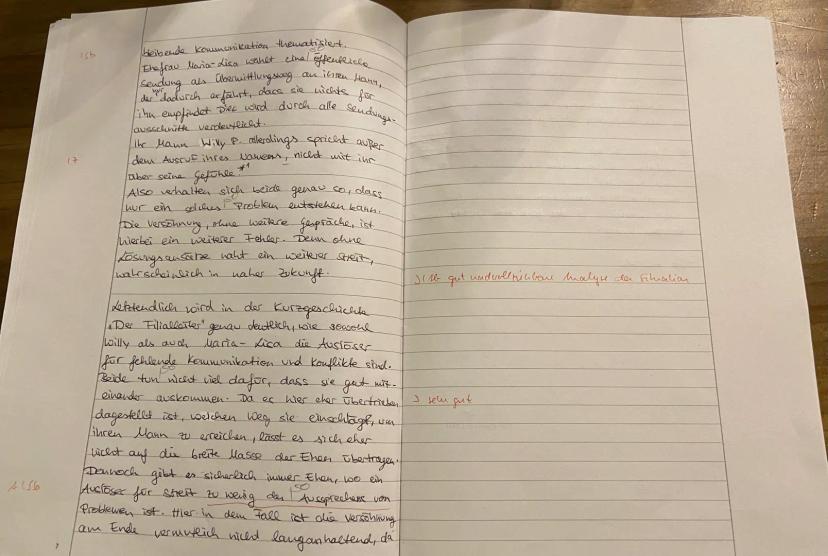 bleibende Kommunikation thematisiert.
Ehefrau Maria-Lisa wählt eine öffentliche
Sendung als Übermittlungsweg an ihren Mann,
der dadurch erfährt, dass sie nichts für
ihn empfindet. Dies wird durch alle Sendungs-
ausschnitte verdeutlicht.
Ihr Mann Willy P. allerdings spricht außer
dem Ausruf ihres Namens, nicht mit ihr
über seine Gefühle. *1
Also verhalten sich beide genau so, dass
nur ein solches Problem entstehen kann.
Die Versöhnung, ohne weitere Gespräche, ist
hierbei ein weiterer Fehler. Denn ohne
Lösungsansätze naht ein weiterer Streit,
wahrscheinlich in naher Zukunft.
gut nachvollziehbare Analyse der Situation
Letztendlich wird in der Kurzgeschichte
„Der Filialleiter" genau deutlich, wie sowohl
Willy als auch Maria-Lisa die Auslöser
für fehlende Kommunikation und Konflikte sind.
Beide tun nicht viel dafür, dass sie gut mit-
einander auskommen. Da es hier eher übertrieben
sehr gut
dagestellt ist, welchen Weg sie einschlägt, um
ihren Mann zu erreichen, lässt es sich eher
nicht auf die breite Masse der Ehen übertragen.
Dennoch gibt es sicherlich immer Ehen, wo ein
Auslöser für Streit zu wenig des Aussprechens von
Problemen ist. Hier in dem Fall ist die Versöhnung
am Ende vermutlich nicht langanhaltend, da